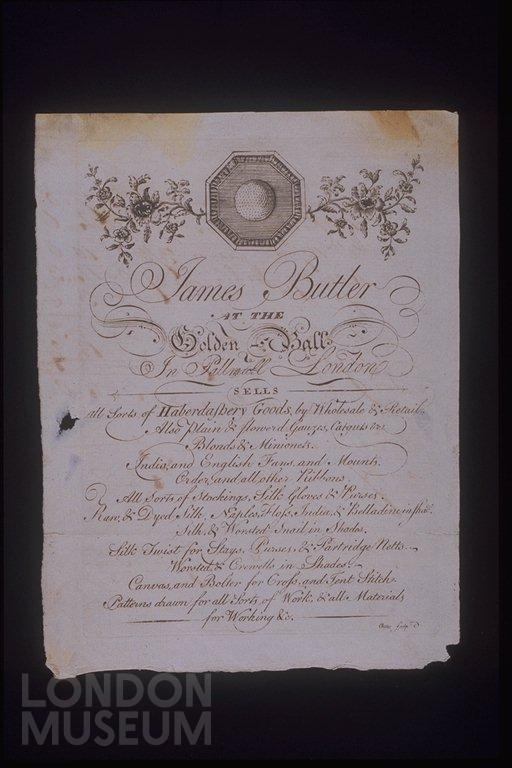 James Butler
AT THE
Golden-Ball
In Pallmall London
SELLS
All Sorts of Haberdashery Goods, by Wholesale & Retail,
Also Plain & flower'd Gauzes, Catguts &c
Blonds & Mimonets.
India, and English Fans, and Mounts,
Order, and all other Ribbons
All Sorts of Stockings, Silk Gloves & Purses.
Raw, & Dyed Silk, Naples, Floss, India, & Balladine, in Shades
Silk, & Worsted Snail in Shades.
Silk Twist for Stays, Purses, & Partridge Netts.
Worsted, & Crewells in Shades.
Canvas, and Bolter for Cross, and Tent Stitch
Patterns drawn for all Sorts of Work, & all Materials
for Working &c.
Sculpt.
LONDON
MUSEUM